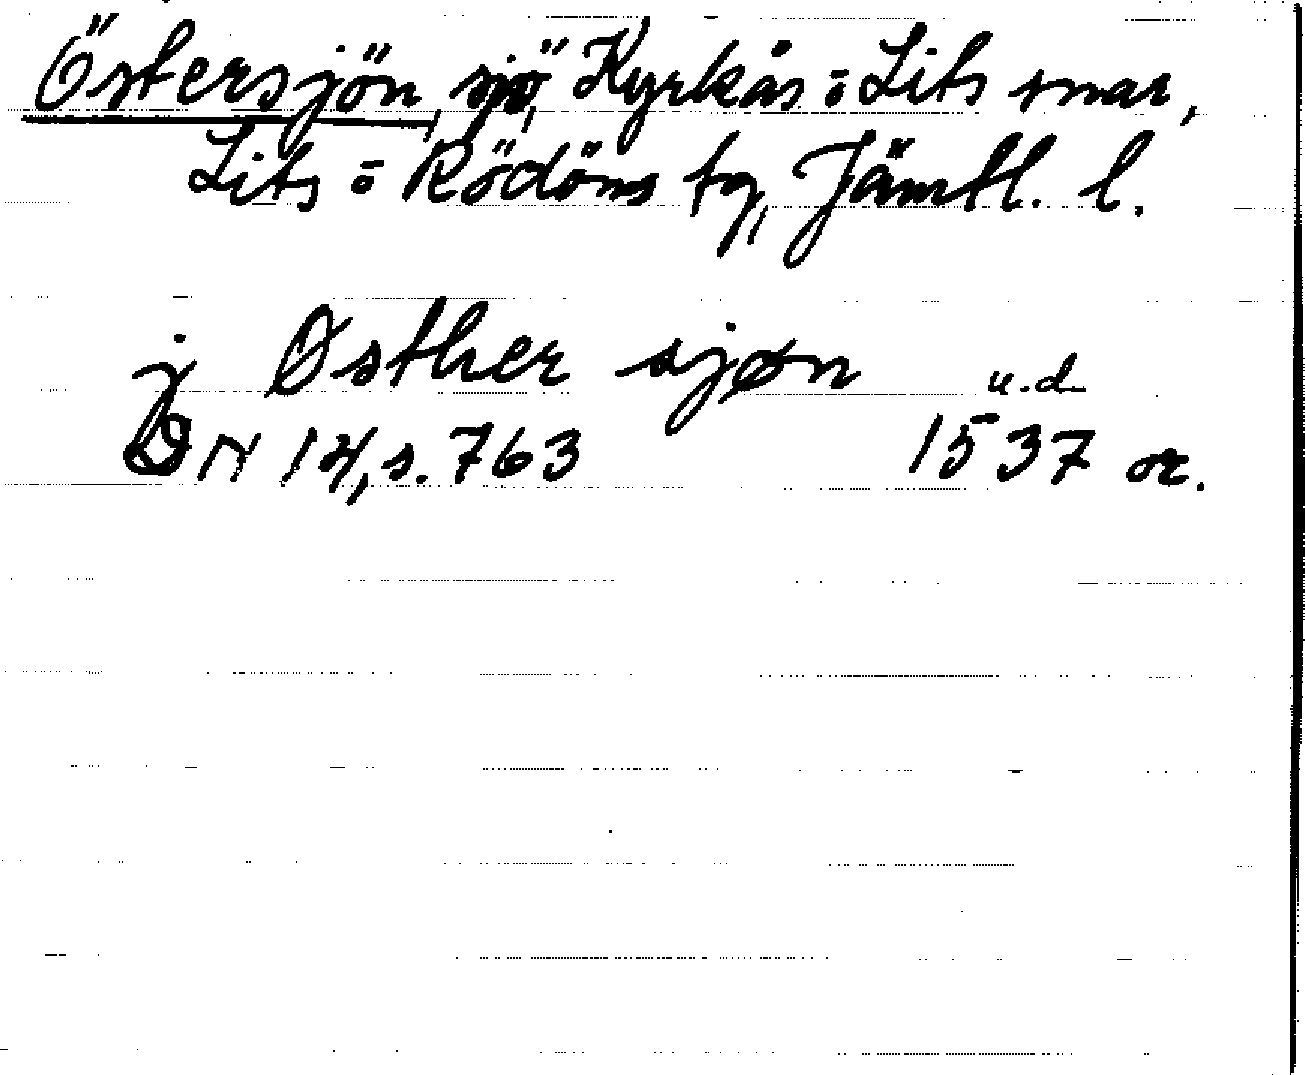 Östersjön, sjö, Kyrkås o Lits snar,
Lits o Rödöns tg, Jämtl. l.
j Østher sjøn u.d.
DN 14, s. 763 1537 or.